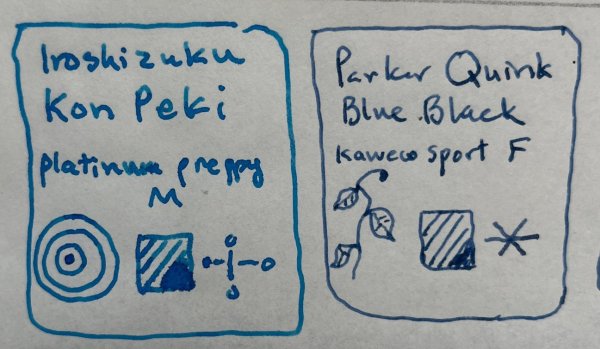 Iroshizuku
Kon Peki
platinum preppy
M
Parker Quink
Blue.Black
Kaweco Sport F